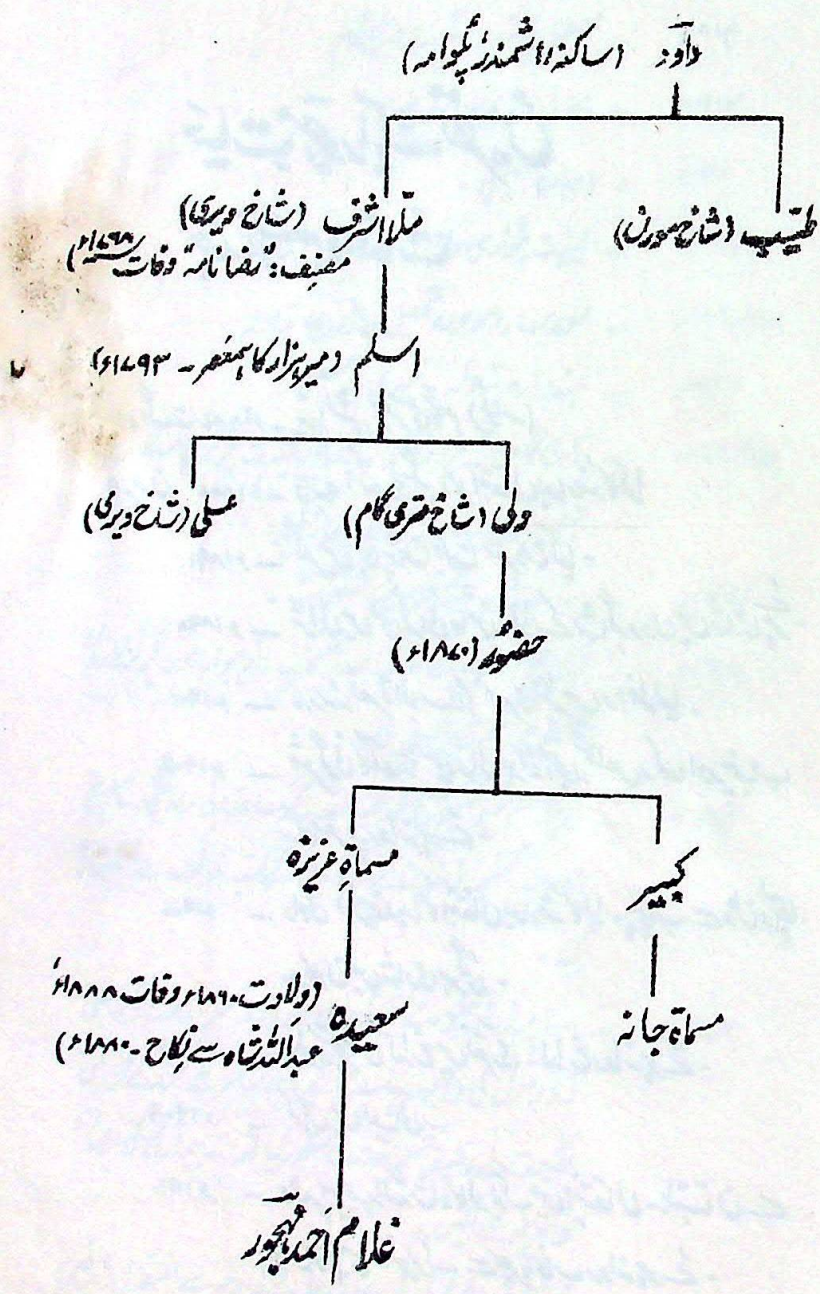 داؤد (ساکنہ داشمندر پلوامہ)
طیّب (شاخ صورن)
ملّا اشرف (شاخ ویری)
مصنِف: "رضا نامہ" وفات ۱۷۶۸ء)
اسلم (میر ہزار کا ہمعصر ۔ ۱۷۹۳ء)
ولی (شاخ متری گام)
علی (شاخ ویری)
حضُور (۱۸۷۰ء)
کبیر
مسماۃِ عزیزہ
مسماۃ جانہ
سعیدہ (ولادت ۱۸۶۰ء وفات ۱۸۸۸ء
عبداللہ شاہ سے نِکاح ۔ ۱۸۸۰ء)
غلام احمد مہجور